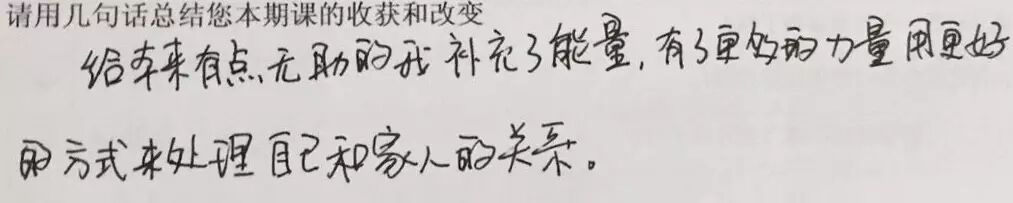 请用几句话总结您本期课的收获和改变
给本来有点无助的我补充了能量,有了更好的力量用更好
的方式来处理自己和家人的关系。